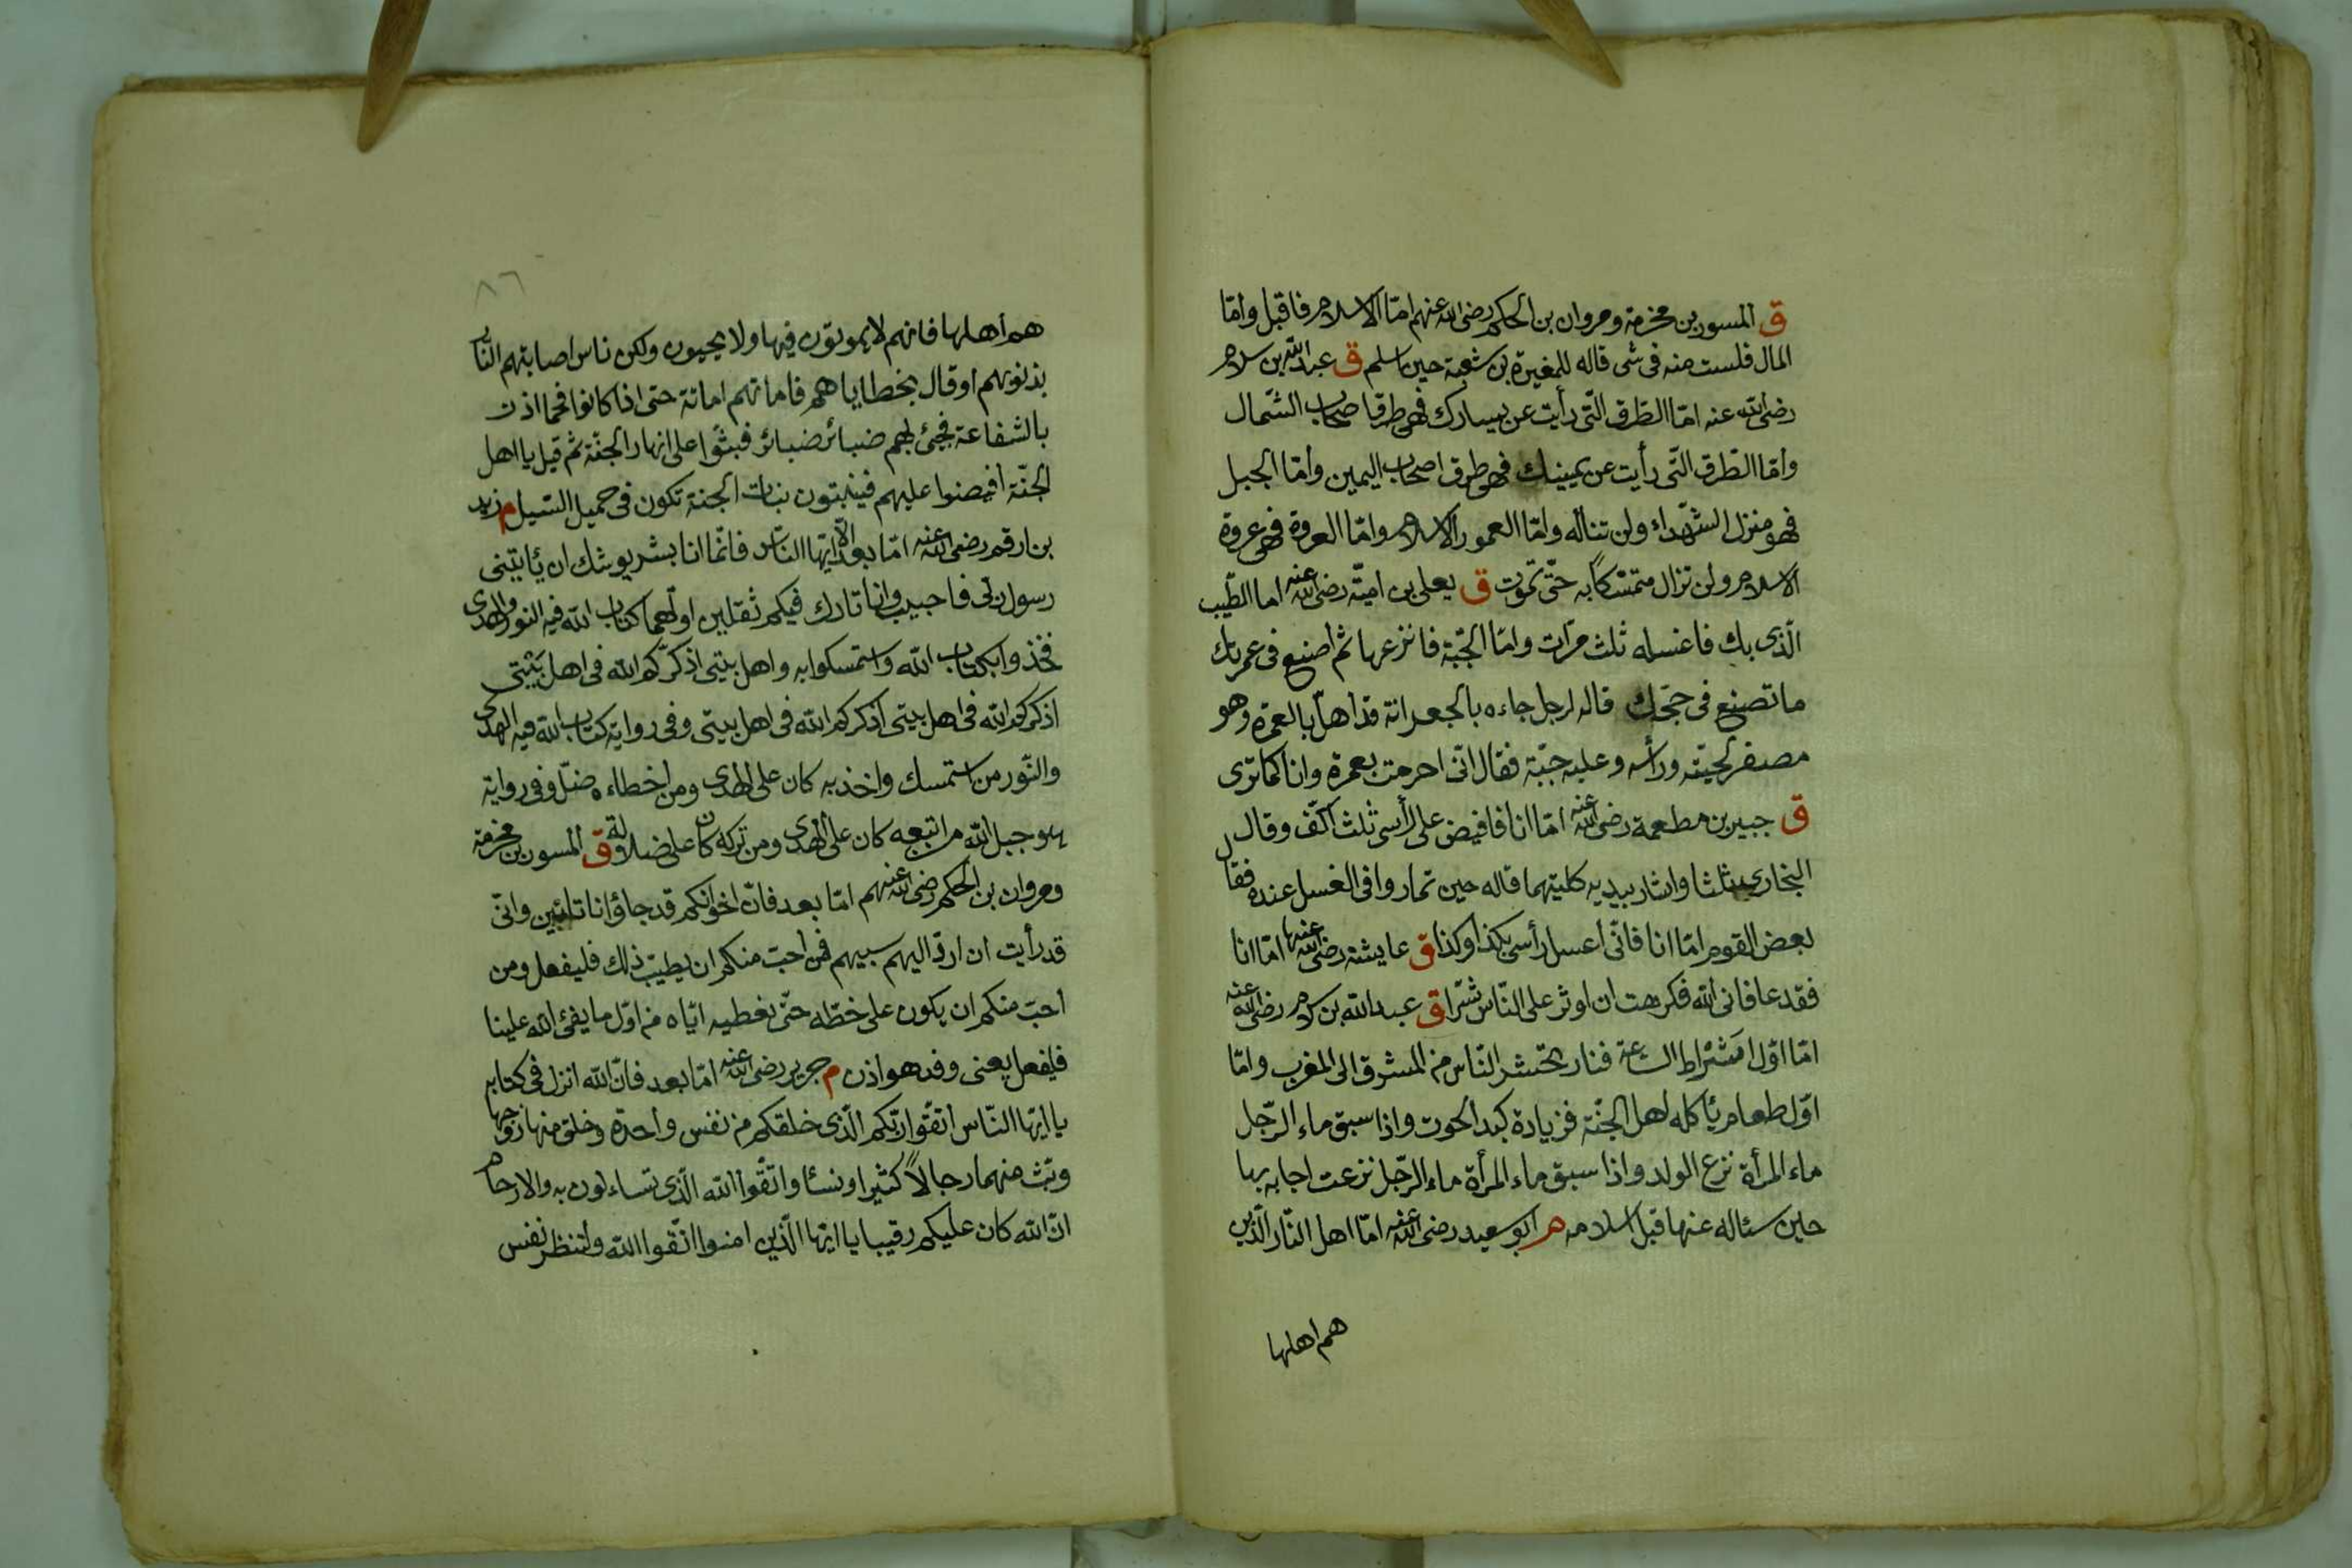 ق المسور بن مخرمة ومروان بن الحكم رضى الله عنهم امّا الاسلام فاقبل وامّا
المال فلست منه فى شى قاله للمغيرة بن شعبة حين اسلم ق عبد الله بن سلام
رضى الله عنه امّا الطّرق الّتى رأيت عن يسارك فهى طرق اصحاب الشّمال
وامّا الطّرق الّتى رأيت عن يمينك فهى طرق اصحاب اليمين وامّا الجبل
فهو منزل الشّهداء ولن تناله وامّا العمود الاسلام وامّا العروة فهى عروة
الاسلام ولن تزال متمسّكاً به حتّى تموت ق يعلى بن اميّة رضى الله عنه اما الطّيب
الّذى بك فاغسله ثلث مرّات وامّا الجّبة فانزعها ثم اصنع فى عمرتك
ما تصنع فى حجّك قاله لرجل جاءه بالجعرانة قد اهلّ بالعمرة وهو
مصفر لحيته ورأسه وعليه جبّة فقال انّى احرمت بعمرة وانا كما ترى
ق جبير بن مطعمة رضى الله عنه امّا انا فافيض على رأسى ثلث اكفّ وقال
البخارى ثلثا واشار بيديه كلتيهما قاله حين تماروا فى الغسل عنده فقال
بعض القوم امّا انا فانّى اغسل رأسى بكذا وكذا ق عايشة رضى الله عنها امّا انا
فقد عافانى الله فكرهت ان اوثر على النّاس شرّا ق عبد الله بن سلام رضى الله عنه
امّا اوّل اشراط الساعة فنار تحشر النّاس من المشرق الى المغرب وامّا
اوّل طعام يأكله اهل الجنّة فزيادة كبد الحوت واذا سبق ماء الرّجل
ماء المرأة نزع الولد واذا سبق ماء المرأة ماء الرّجل نزعت اجابه بها
حين سئاله عنها قبل اسلامه م ابو سعيد رضى الله عنه امّا اهل النّار الّذين
هم اهلها
٨٦
هم اهلها فانهم لا يموتون فيها ولا يحيون ولكن ناس اصابتهم النّار
بذنوبهم او قال بخطاياهم فاماتهم اماتة حتى اذا كانوا فحما اذن
بالشفاعة فجئ بهم ضبائر ضبائر فبثّوا على انهار الجنّة ثم قيل يا اهل
الجنّة افيضوا عليهم فينبتون نبات الجنة تكون فى حميل السّيل م زيد
بن ارقم رضى الله عنه امّا بعد الا ايّها النّاس فانّما انا بشر يوشك ان يأتينى
رسول ربّى فاجيب وانا تارك فيكم ثقلين اولهما كتاب الله فيه النور والهدى
فخذوا بكتاب الله واستمسكوا به واهل بيتى اذكّركم الله فى اهل بيتى
اذكركم الله فى اهل بيتى اذكركم الله فى اهل بيتى وفى رواية كتاب الله فيه الهدى
والنّور من استمسك واخذ به كان على الهدى ومن اخطاءه ضلّ وفى رواية
هو حبل الله من اتبعه كان على الهدى ومن تركه كان على ضلالة ق المسور بن مخرمة
ومروان بن الحكم رضى الله عنهم امّا بعد فانّ اخوانكم قد جاؤانا تائبين وانّى
قد رأيت ان اردّ اليهم سبيهم فمن احبّ منكم ان يطيّب ذلك فليفعل ومن
احبّ منكم ان يكون على حظّه حتّى نعطيه ايّاه من اوّل ما يفئ الله علينا
فليفعل يعنى وفد هواذن م جرير رضى الله عنه امّا بعد فانّ الله انزل فى كتابه
يا ايّها النّاس اتّقوا ربّكم الّذى خلقكم من نفس واحدة وخلق منها زوجها
وبثّ منهما رجالاً كثيرا ونسئا واتّقوا الله الّذى تساءلون به والارحام
انّ الله كان عليكم رقيبا يا ايّها الّذين امنوا اتّقوا الله ولتنظر نفس